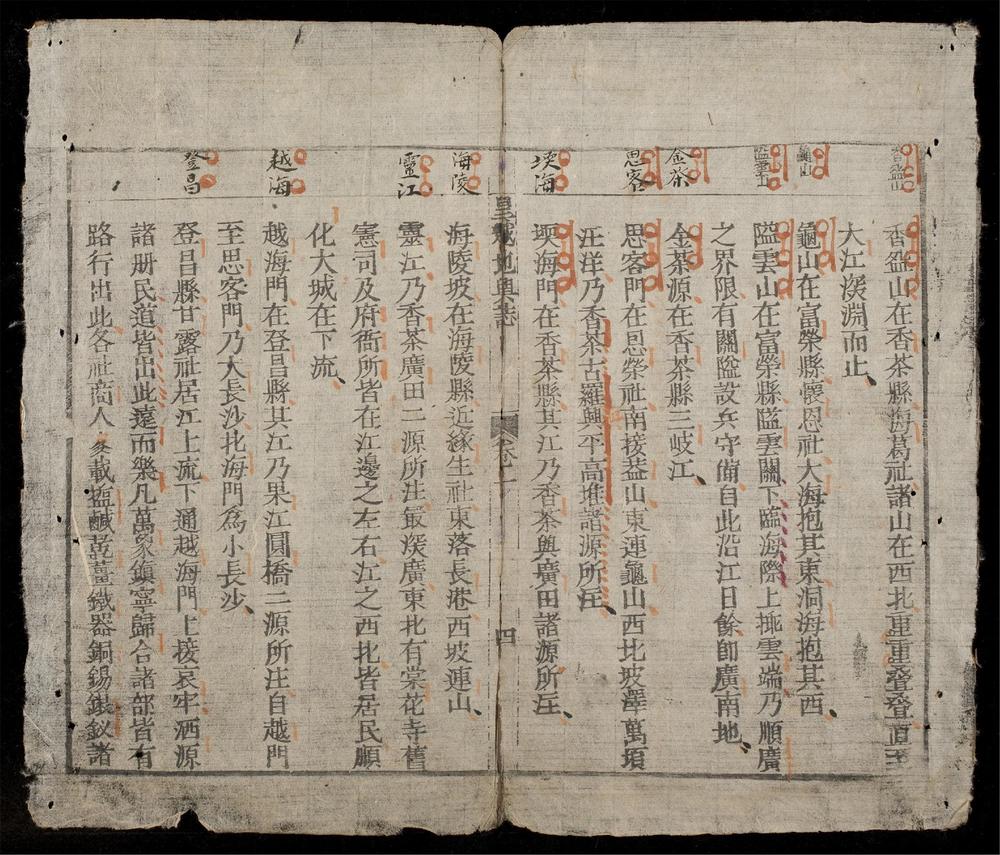 香盆山
龜山
隘雲山
金茶
思客
堧海
香盆山在香茶縣海葛社諸山在西北重重疊疊直至
大江深淵而止
龜山在富榮縣懷恩社大海抱其東洞海抱其西
隘雲山在富榮縣隘雲關下臨海際上挿雲端乃順廣
之界限有關隘設兵守備自此沿江日餘卽廣南地
金茶源在香茶縣三岐江
思客門在思榮社南接益山東連龜山西北坡澤萬頃
汪洋乃香茶古羅興平高堆諸源所注
堧海門在香茶縣其江乃香茶興廣田諸源所注
皇越地輿誌 卷之一 四
海陵
靈江
越海
登昌
海陵坡在海陵縣近緣生社東落長港西坡連山
靈江乃香茶廣田二源所注最深廣東北有棠花寺舊
憲司及府衙所皆在江邊之左右江之西北皆居民順
化大城在下流
越海門在登昌縣其江乃果江圓橋二源所注自越門
至思客門乃大長沙北海門爲小長沙
登昌縣甘露社居江上上流下通越海門上接哀牢洒源
諸册民道皆出此遠而樂凡萬象鎮寧歸合諸部皆有
路行出此各社商人多載塩鹹乾薑鐵器銅錫銀釵諸